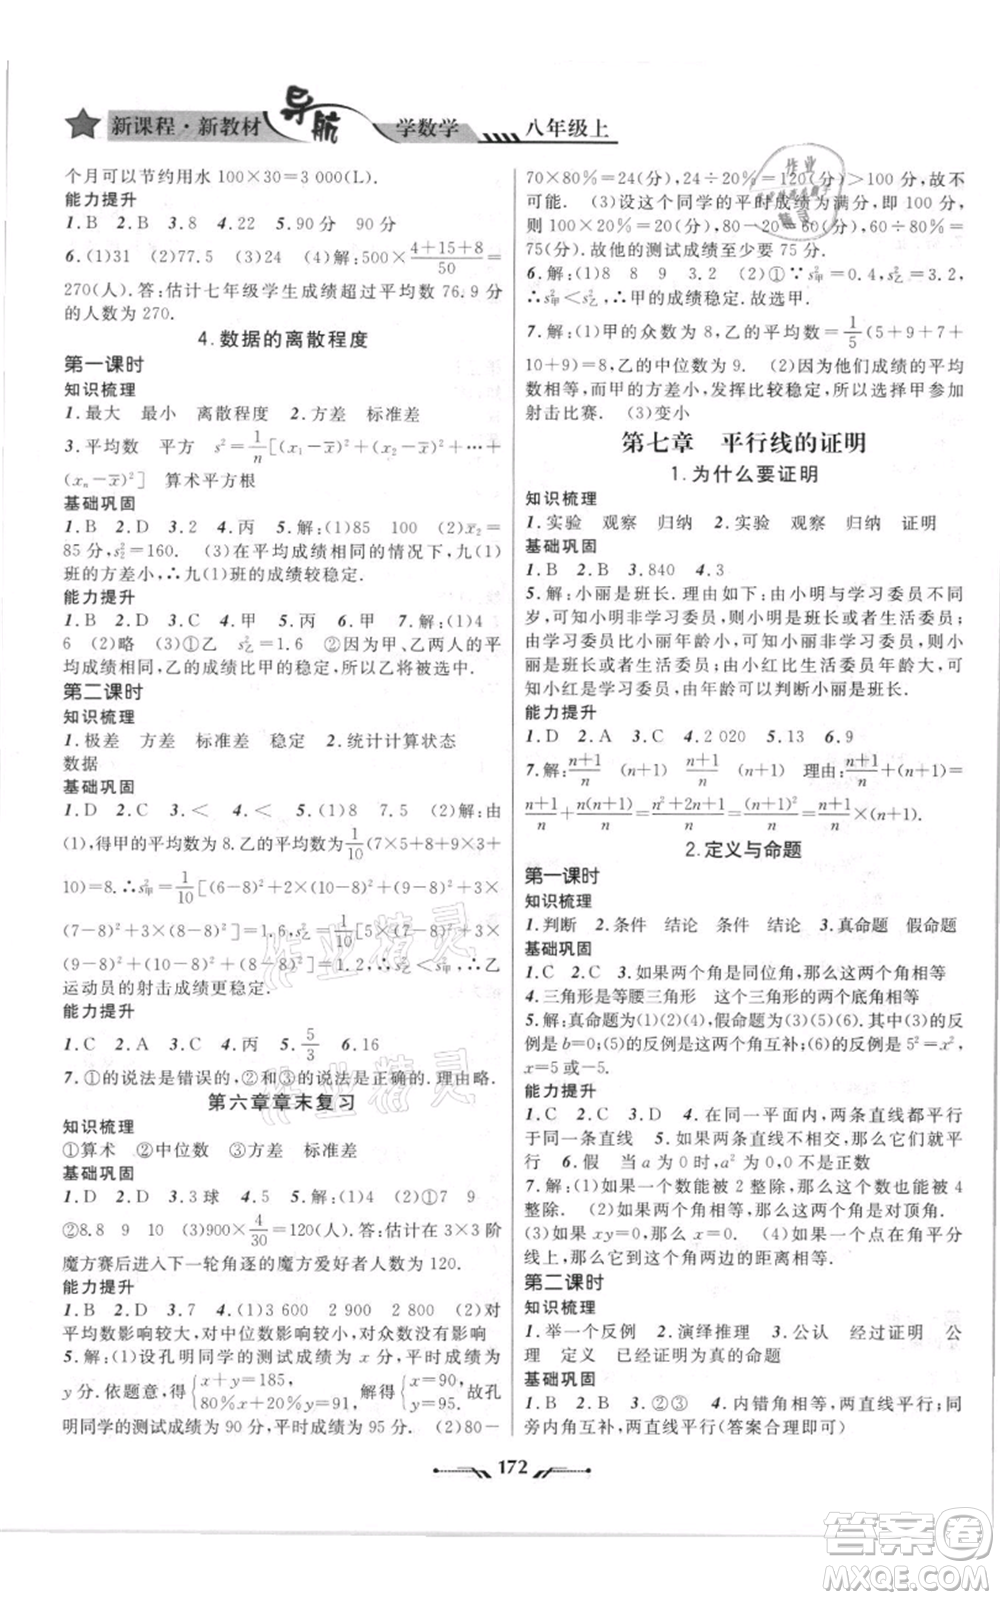 新课程·新教材 导航 学数学 八年级上
个月可以节约用水 100×30=3 000(L).
能力提升
1.B 2.B 3.19 4.25 5.90分 90分
6.(1)31 (2)77.5 (3)24 (4)解:500×(4+15+8)/50=
270(人).答:估计七年级学生成绩超过平均数 76.9 分
的人数为 270.
4.数据的离散程度
第一课时
知识梳理
1.最大 最小 离散程度 2.方差 标准差
3.平均数 平方 s²=1/n[(x₁-x̄)²+(x₂-x̄)²+…+
(xₙ-x̄)²] 算术平方根
基础巩固
1.B 2.D 3.2 4.丙 5.解:(1)85 100 (2)x̄₂=
85分,s₂²=160. (3)在平均成绩相同的情况下,九(1)
班的方差小,∴九(1)班的成绩较稳定.
能力提升
1.B 2.D 3.C 4.甲 5.丙 6.甲 7.解:(1)4
6 (2)略 (3)①乙 s乙²=1.6 ②因为甲、乙两人的平
均成绩相同,乙的成绩比甲的稳定,所以乙将被选中.
第二课时
知识梳理
1.极差 方差 标准差 稳定 2.统计计算状态
数据
基础巩固
1.D 2.C 3.< 4.< 5.(1)8 7.5 (2)解:由
(1),得甲的平均数为8.乙的平均数为1/10(7×5+9×2+
10)=8.∴s甲²=1/10[(6-8)²+(6-8)²+(6-8)²+3×
(7-8)²+3×(9-8)²+(10-8)²]=1.6,s乙²=1/10[5×
(7-8)²+2×(8-8)²+(9-8)²+2×
(9-8)²+(10-8)²]=1.2,∴s乙²<s甲²,∴乙
运动员的射击成绩更稳定.
能力提升
1.C 2.C 3.A 4.B 5.5/3 6.16
7.①的说法是错误的,②和③的说法是正确的.理由略.
第六章章末复习
知识梳理
①算术 ②中位数 ③方差 标准差
基础巩固
1.D 2.A 3.3球 4.5 5.解:(1)4 (2)①7 9
②8.8 9 10 (3)900×4/30=120(人).答:估计在3×3阶
魔方赛后进入下一轮角逐的魔方爱好者人数为120.
能力提升
1.B 2.D 3.7 4.(1)3 600 2 900 2 800 (2)对
平均数影响较大,对中位数影响小,对众数没有影响
5.解:(1)设孔明同学的测试成绩为 x 分,平时成绩为
y分.依题意,得{x+y=185, 80%x+20%y=91. 解得{x=90, y=95. 故孔
明同学的测试成绩为 90 分,平时成绩为 95 分. (2)80-
70×80%=24(分),24÷20%=120(分)>100分,故不
可能. (3)设这个同学的平时成绩为满分,即 100 分,
则 100×20%=20(分),80-20=60(分),60÷80%=
75(分).故他的测试成绩至少要 75 分.
6.解:(1)8 8 9 3.2 (2)①∵s甲²=0.4,s乙²=3.2,
∴s甲²<s乙².∴甲的成绩较稳定.故选甲.
7.解:(1)甲的众数为 8,乙的平均数=1/5(5+9+7+
10+9)=8,乙的中位数为9. (2)因为他们成绩的平均
数相等,而甲的方差小,发挥比较稳定,所以选择甲参加
射击比赛. (3)变小
第七章 平行线的证明
1.为什么要证明
知识梳理
1.实验 观察 归纳 2.实验 观察 归纳 证明
基础巩固
1.B 2.B 3.840 4.3
5.解:小丽是班长.理由如下:由小明与学习委员不同
岁,可知小明非学习委员,则小明是生活委员或班长;
由学习委员比小丽年龄小,可知小丽非学习委员,则小
丽是班长或生活委员;又小明比生活委员年龄大,可知
小红是学习委员,由年龄可以判断小丽是班长.
能力提升
1.D 2.A 3.C 4.2 020 5.13 6.9
7.解:(n+1)/n (n+1) (n+1)/n×(n+1) 理由:(n+1)/n+(n+1)=
(n+1)/n+n(n+1)/n=(n²+2n+1)/n=(n+1)²/n=(n+1)/n×(n+1).
2.定义与命题
第一课时
知识梳理
1.判断 2.条件 结论 条件 结论 3.真命题 假命题
基础巩固
1.C 2.C 3.如果两个角是同位角,那么这两个角相等
4.三角形是等腰三角形 这个三角形的两个底角相等
5.解:真命题为(1)(2)(4),假命题为(3)(5)(6).其中(3)的反
例 b=0;(5)的反例是这两个角互补;(6)的反例是 5²=x²,
x=5或-5.
能力提升
1.C 2.B 3.D 4.在同一平面内,两条直线都平行
于同一条直线 5.如果两直线不相交,那么它们平
行 6.假 当 a 为 0 时,a²=0,0 不是正数
7.解:(1)如果一个数能被 2 整除,那么这个数也能被 4
整除. (2)如果两个角相等,那么这两个角为对顶角.
(3)如果 xy=0,那么 x=0. (4)如果一个点在角平分
线上,那么它到这个角两边的距离相等.
第二课时
知识梳理
1.举一个反例 2.演绎推理 3.公认 经过证明 公
理 定义 已经证明为真的命题
基础巩固
1.C 2.B 3.②③ 4.内错角相等,两直线平行;同
旁内角互补,两直线平行(答案合理即可)
172
作业精灵
作业精灵
答案卷
MXQE.COM